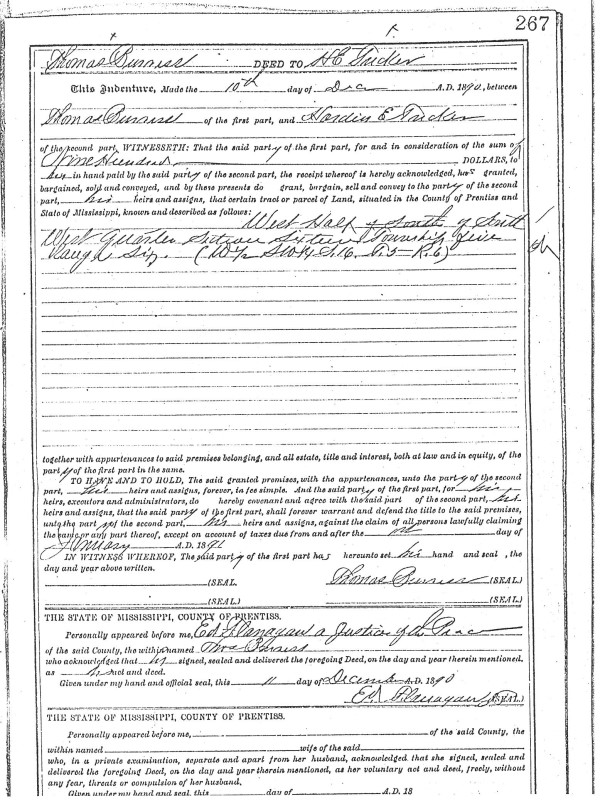 267
Thomas Burress DEED TO H E Tucker
This Indenture, Made the 10th day of Dec A.D. 1890, between
Thomas Burress of the first part, and Hardin E Tucker
of the second part, WITNESSETH: That the said party of the first part, for and in consideration of the sum of
Nine Hundred DOLLARS, to
him in hand paid by the said party of the second part, the receipt whereof is hereby acknowledged, has granted,
bargained, sold and conveyed, and by these presents do grant, bargain, sell and convey to the party of the second
part, his heirs and assigns, that certain tract or parcel of Land, situated in the County of Prentiss and
State of Mississippi, known and described as follows:
West Half of South of South
West Quarter Section Sixteen Township five
Range Six. (W½ SW¼ S.16. T.5-R.6)
together with appurtenances to said premises belonging, and all estate, title and interest, both at law and in equity, of the
party of the first part in the same.
TO HAVE AND TO HOLD, The said granted promises, with the appurtenances, unto the party of the second
part, his heirs and assigns, forever, in fee simple. And the said party of the first part, for his
heirs, executors and administrators, do hereby covenant and agree with the said part of the second part, his
heirs and assigns, that the said party of the first part, shall forever warrant and defend the title to the said premises,
unto the party of the second part, his heirs and assigns, against the claim of all persons lawfully claiming
the same or any part thereof, except on account of taxes due from and after the 1st day of
January A.D. 1891
IN WITNESS WHEREOF, The said party of the first part has hereunto set his hand and seal, the
day and year above written.
(SEAL. Thomas Burress (SEAL.)
(SEAL.) (SEAL.)
THE STATE OF MISSISSIPPI, COUNTY OF PRENTISS.
Personally appeared before me, Ed Flanagan a Justice of the Peace
of the said County, the within named Thos Burress
who acknowledged that he signed, sealed and delivered the foregoing Deed, on the day and year therein mentioned,
as his act and deed.
Given under my hand and official seal, this 11 day of December A.D. 1890
Ed Flanagan (SEAL.)
THE STATE OF MISSISSIPPI, COUNTY OF PRENTISS.
Personally appeared before me, of the said County, the
within named wife of the said
who, in a private examination, separate and apart from her husband, acknowledged that she signed, sealed and
delivered the foregoing Deed, on the day and year therein mentioned, as her voluntary act and deed, freely, without
any fear, threats or compulsion of her husband.
Given under my hand and seal, this day of A.D. 18